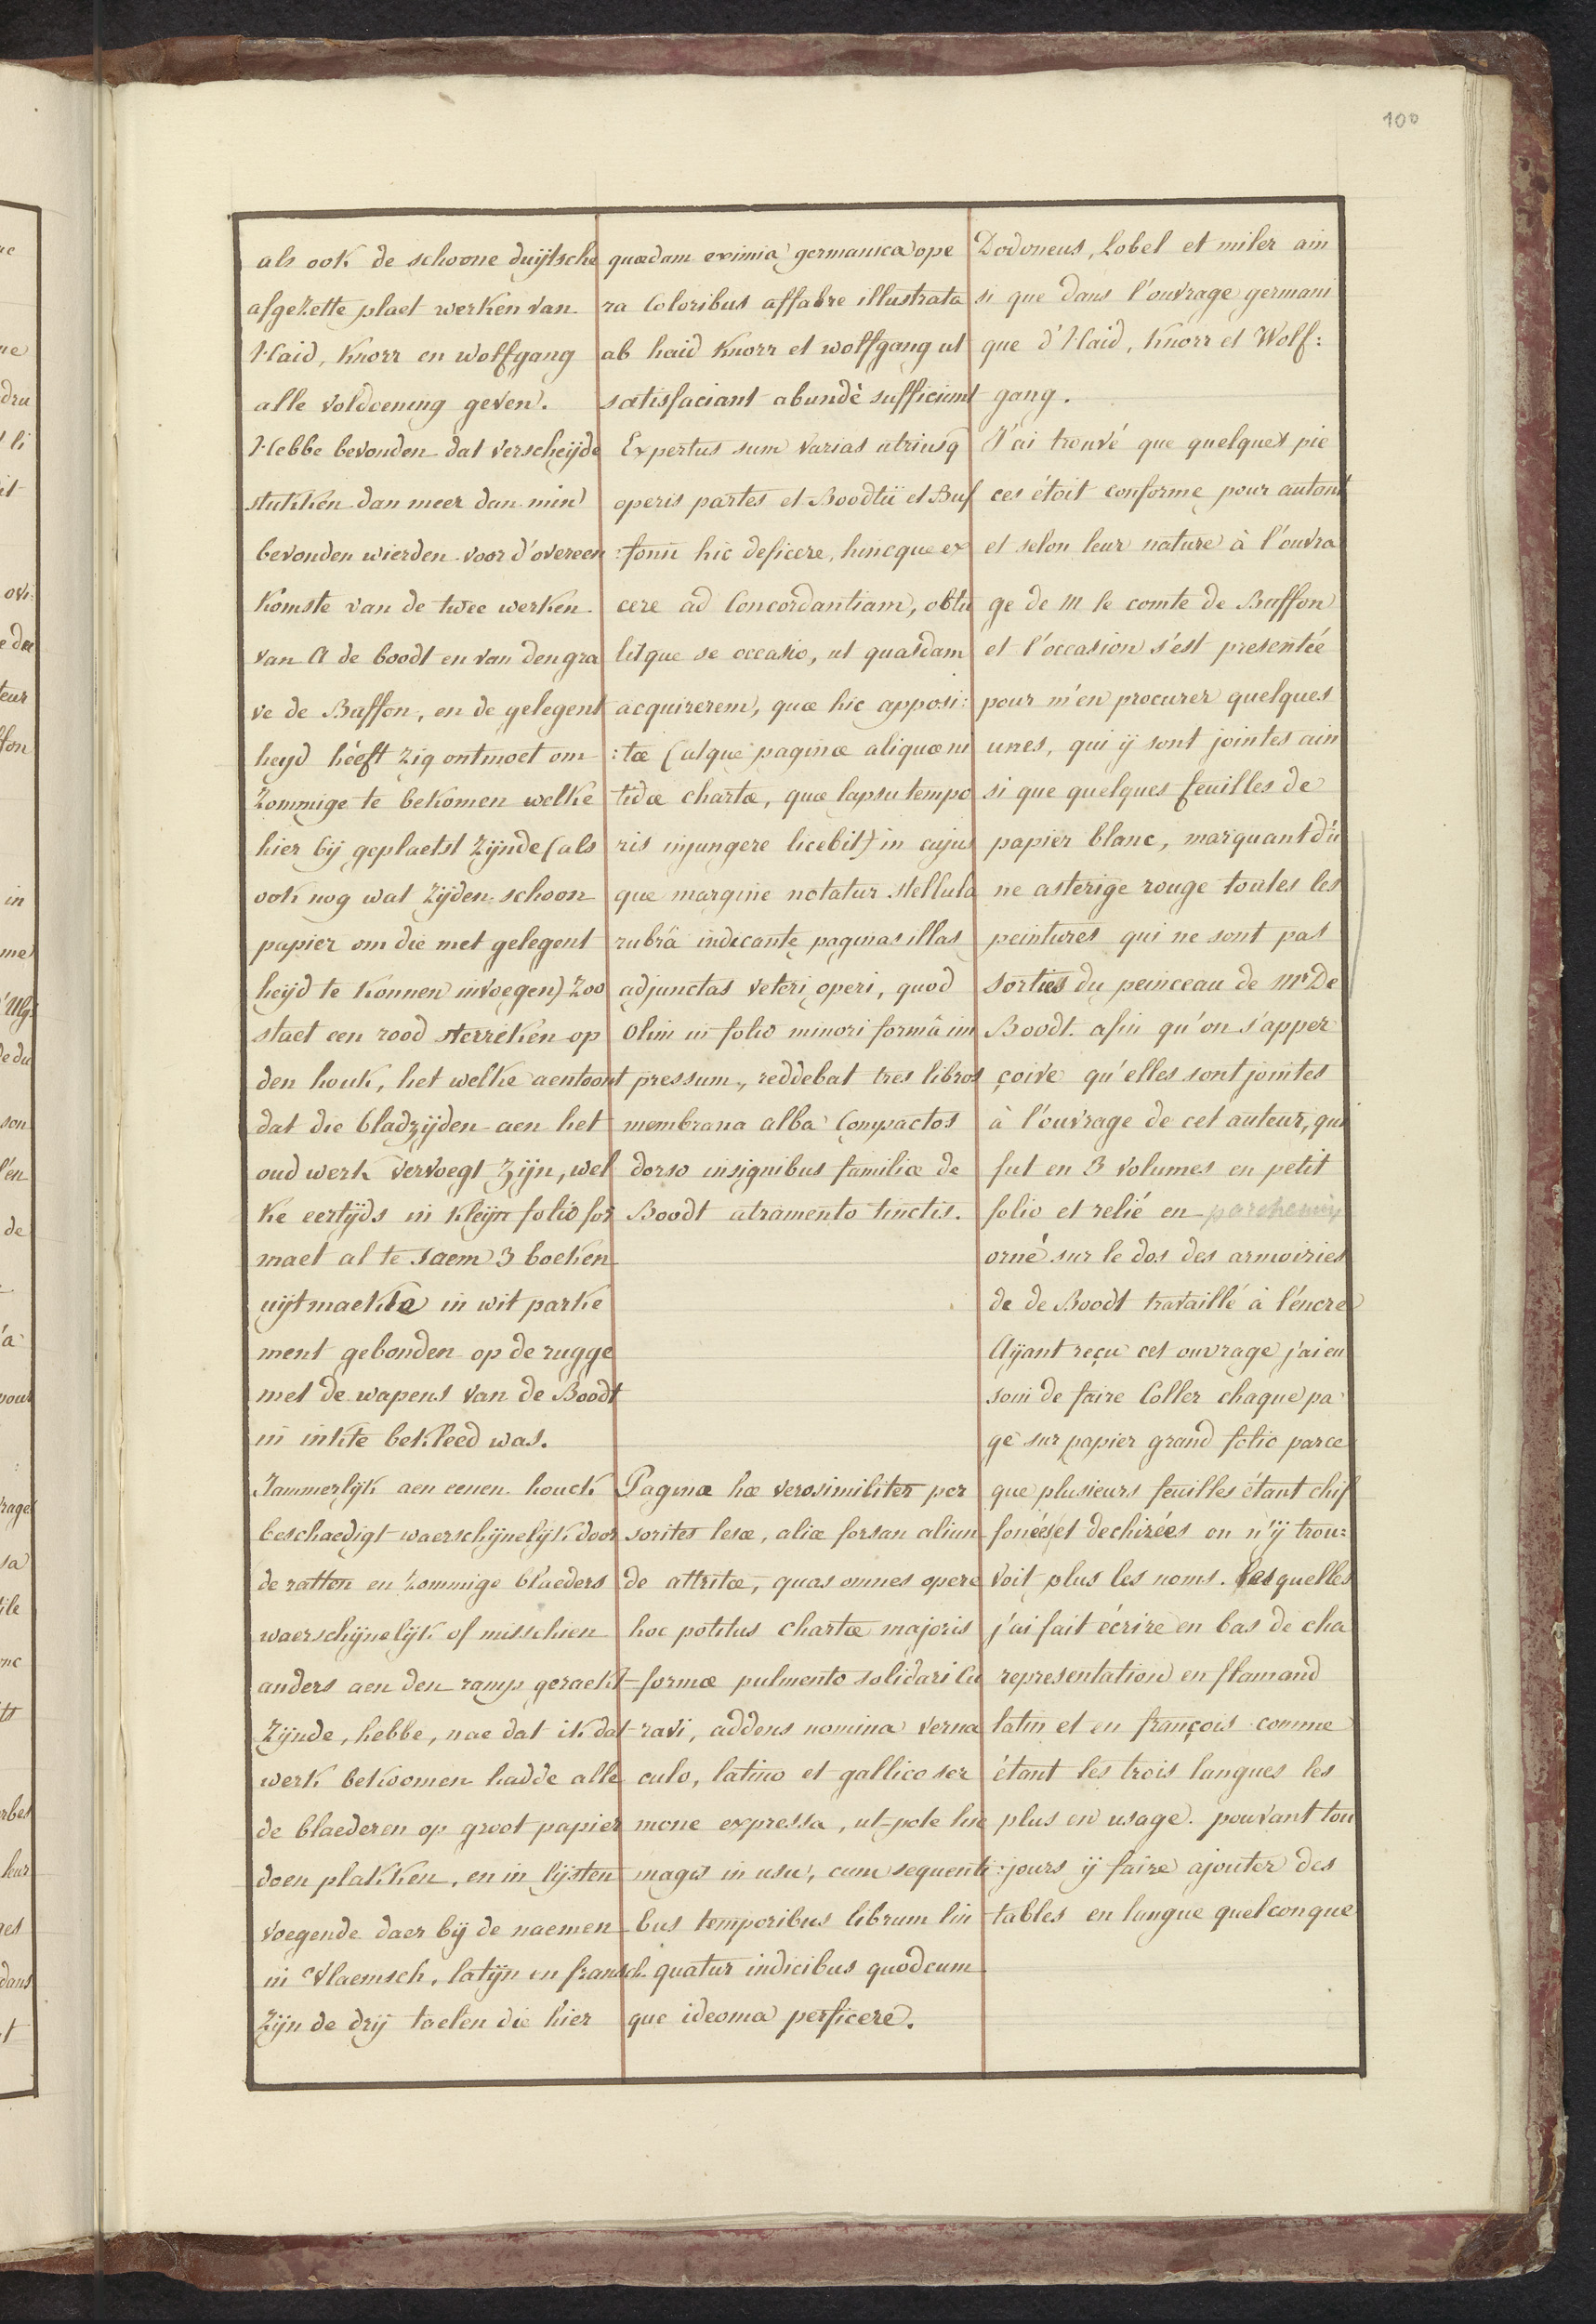 100
als ook de schoone duijtsche
afgezette plaet werken van
Haid, Knorr en Wolfgang
alle voldoening geven.
Hebbe bevonden dat verscheijde
stukken dan meer dan min
bevonden wierden voor d'overeen
komste van de twee werken
van A de boodt en van den gra
ve de Baffon, en de gelegent
heyd heeft zig ontmoet om
Zommige te bekomen welke
hier bij geplaetst zijnde (als
ook nog wat zijden schoon
papier om die met gelegent
heijd te konnen invoegen) zoo
staet een rood sterreken op
den houk, het welke aentoont
dat die bladzijden aen het
oud werk vervoegt zijn, wel
ke eertijds in kleijn folio for
maet al te saem 3 boeken
uijtmaekte in wit parke
ment gebonden op de rugge
met de wapens van de Boodt
in inkte bekleed was.
Jammerlijk aen eenen houck
beschaedigt waerschijnelijk door
de ratten en zommige blaeders
waerschijnelijk of misschien
anders aen den ramp geraekt
zijnde, hebbe, nae dat ik dat
werk bekoomen hadde alle
de blaederen op groot papier
doen plakken, en in lijsten
voegende daer bij de naemen
in Vlaemsch, latijn en fransch
Zijn de drij taelen die hier
quædam eximia germanica ope
ra Coloribus affabre illustrata
ab haid Knorr et wolfgang ut
satisfaciant abundè sufficiunt
Expertus sum varias utriusq
operis partes et Boodtii et Buf
:fonii hic deficere, hincque ex
cere ad Concordantiam, obtu
litque se occasio, ut quasdam
acquirerem, quæ hic apposi:
:tæ (atque paginæ aliquæ ni
tidæ chartæ, quæ lapsu tempo
ris injungere licebit) in cujus
que margine notatur stellula
rubrâ indicante paginas illas
adjunctas veteri operi, quod
Olim in folio minori formâ im
pressum, reddebat tres libros
membrana alba Compactos
dorso insignibus familiæ de
Boodt atramento tinctis.
Pagina hæ verosimiliter per
sorites lesæ, aliæ forsan aliun
de attritæ, quas omnes opere
hoc potitus chartæ majoris
formæ pulmento solidari Cu
ravi, addens nomina verna
culo, latino et gallico ser
mone expressa, ut-pote hic
magis in usu, cum sequenti
bus temporibus librum lin
quatur indicibus quodcum
que ideoma perficere.
Dodoneus, Lobel et miler ain
si que dans l'ouvrage germani
que d'Haid, Knorr et Wolf:
gang.
J'ai trouvé que quelques pie
ces étoit conforme pour autont
et selon leur nature à l'ouvra
ge de M le comte de Baffon
et l'occasion s'est presentée
pour m'en procurer quelques
unes, qui ÿ sont jointes ain
si que quelques feuilles de
papier blanc, marquant d'ù
ne asterige rouge toutes les
peintures qui ne sont pas
sorties du peinceau de Mr De
Boodt. afin qu'on s'apper
çoive qu'elles sont jointes
à l'ouvrage de cet auteur, qui
fut en 3 volumes en petit
folio et relié en parchemin
orné sur le dos des armoiries
de de Boodt travaillé à l'encre
Aÿant reçu cet ouvrage j'ai eu
soin de faire Coller chaque pa
ge sur papier grand folio parce
que plusieurs feuilles étant chif
fonées et dechirées on n'ÿ trou:
voit plus les noms. lesquelles
j'ai fait écrire en bas de cha
representation en flamand
latin et en françois comme
étant les trois langues les
plus en usage. pouvant tou
:jours ÿ faire ajouter des
tables en langue quelconque